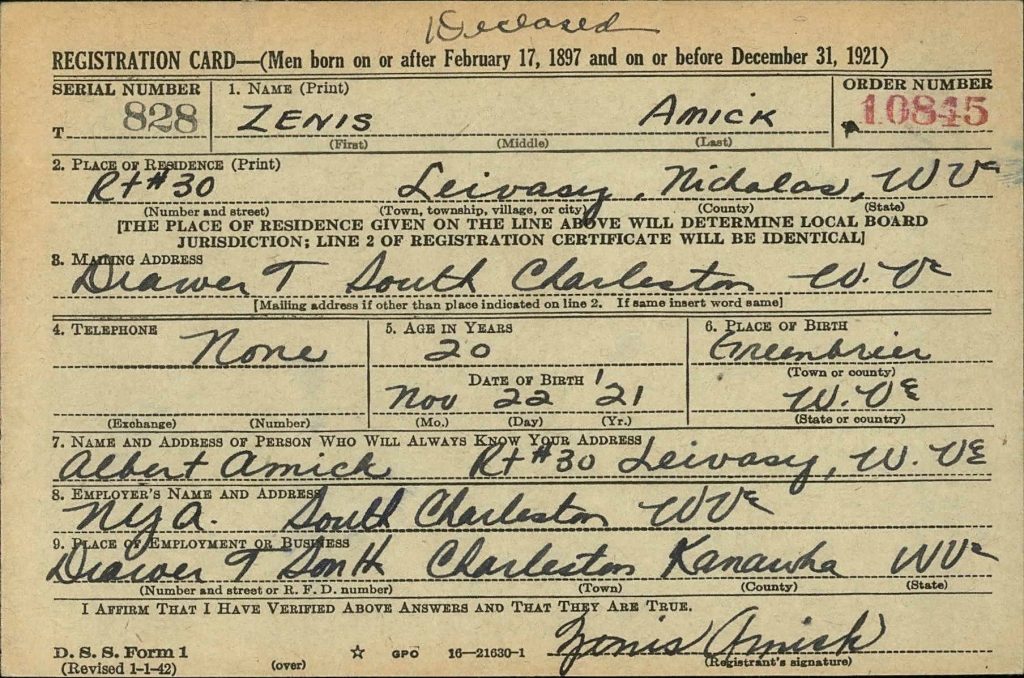 Deceased
REGISTRATION CARD—(Men born on or after February 17, 1897 and on or before December 31, 1921)
SERIAL NUMBER 1. NAME (Print) ORDER NUMBER
T 828 ZENIS AMICK 10845
(First) (Middle) (Last)
2. PLACE OF RESIDENCE (Print)
Rt #30 Leivasy, Nicholas, W Va
(Number and street) (Town, township, village, or city) (County) (State)
[THE PLACE OF RESIDENCE GIVEN ON THE LINE ABOVE WILL DETERMINE LOCAL BOARD
JURISDICTION; LINE 2 OF REGISTRATION CERTIFICATE WILL BE IDENTICAL]
3. MAILING ADDRESS
Drawer T South Charleston W. Va
[Mailing address if other than place indicated on line 2. If same insert word same]
4. TELEPHONE 5. AGE IN YEARS 6. PLACE OF BIRTH
None 20 Greenbrier
(Town or county)
DATE OF BIRTH
Nov 22 '21 W. Va
(Exchange) (Number) (Mo.) (Day) (Yr.) (State or country)
7. NAME AND ADDRESS OF PERSON WHO WILL ALWAYS KNOW YOUR ADDRESS
Albert Amick Rt #30 Leivasy, W. Va
8. EMPLOYER'S NAME AND ADDRESS
NYA. South Charleston W Va
9. PLACE OF EMPLOYMENT OR BUSINESS
Drawer T South Charleston Kanawha W Va
(Number and street or R. F. D. number) (Town) (County) (State)
I AFFIRM THAT I HAVE VERIFIED ABOVE ANSWERS AND THAT THEY ARE TRUE.
Zenis Amick
D. S. S. Form 1 (over) ☆ GPO 16—21630-1 (Registrant's signature)
(Revised 1-1-42)